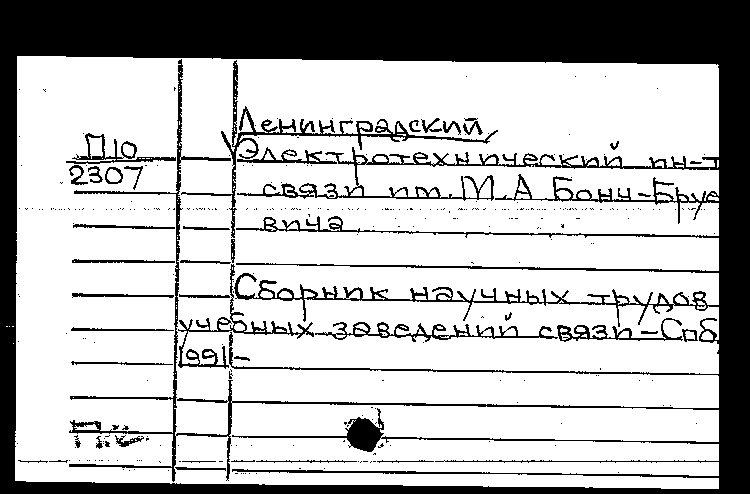 Ленинградский
П10
Электротехнический ин-т
2307
связи им. М.А Бонч-Бруе
вича
Сборник научных трудов
учебных заведений связи-Спб,
1991-